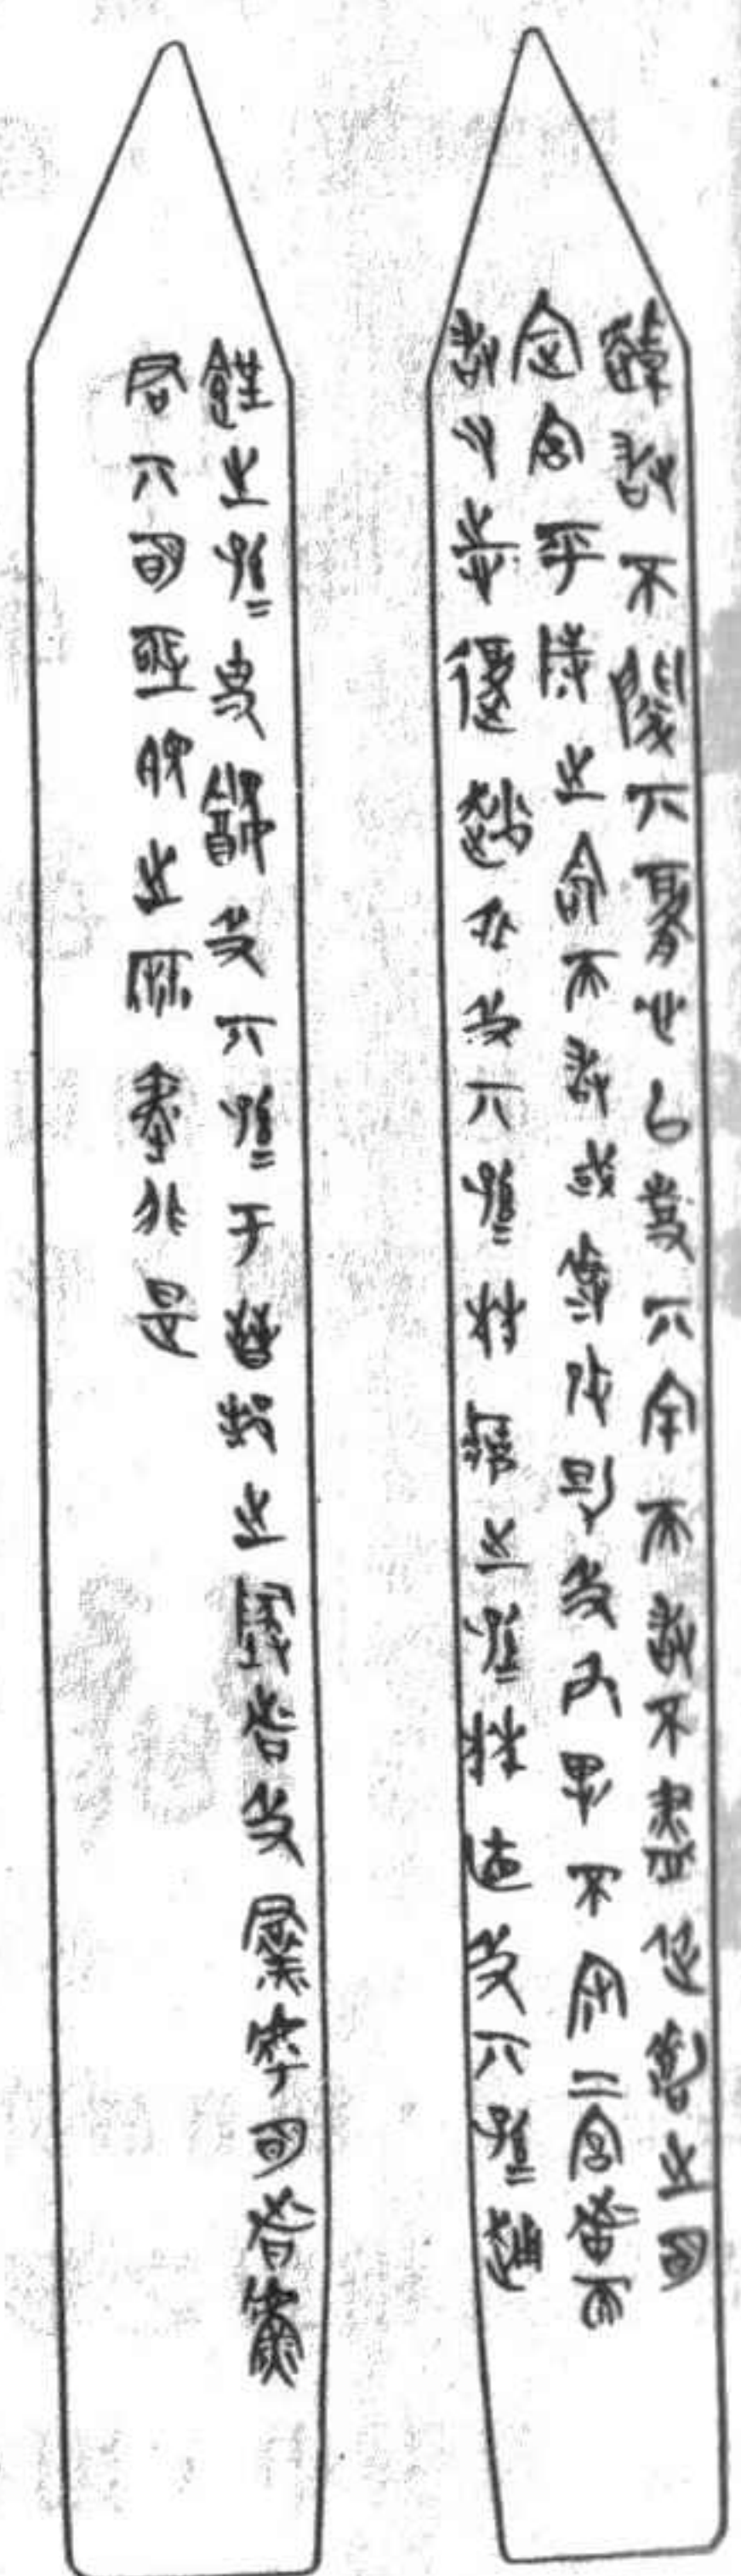 敢不闌其腹心以事其宗而敢不盡從嘉之盟
定宮平寺之命而敢或専改助及奐卑不守二宮者而
敢又志復趙尼及其子孫兟疕之子孫兟直及其子孫趙
之子孫史醜及其子孫于晉邦之地者及群虖明者
君其明亟視之麻夷非是